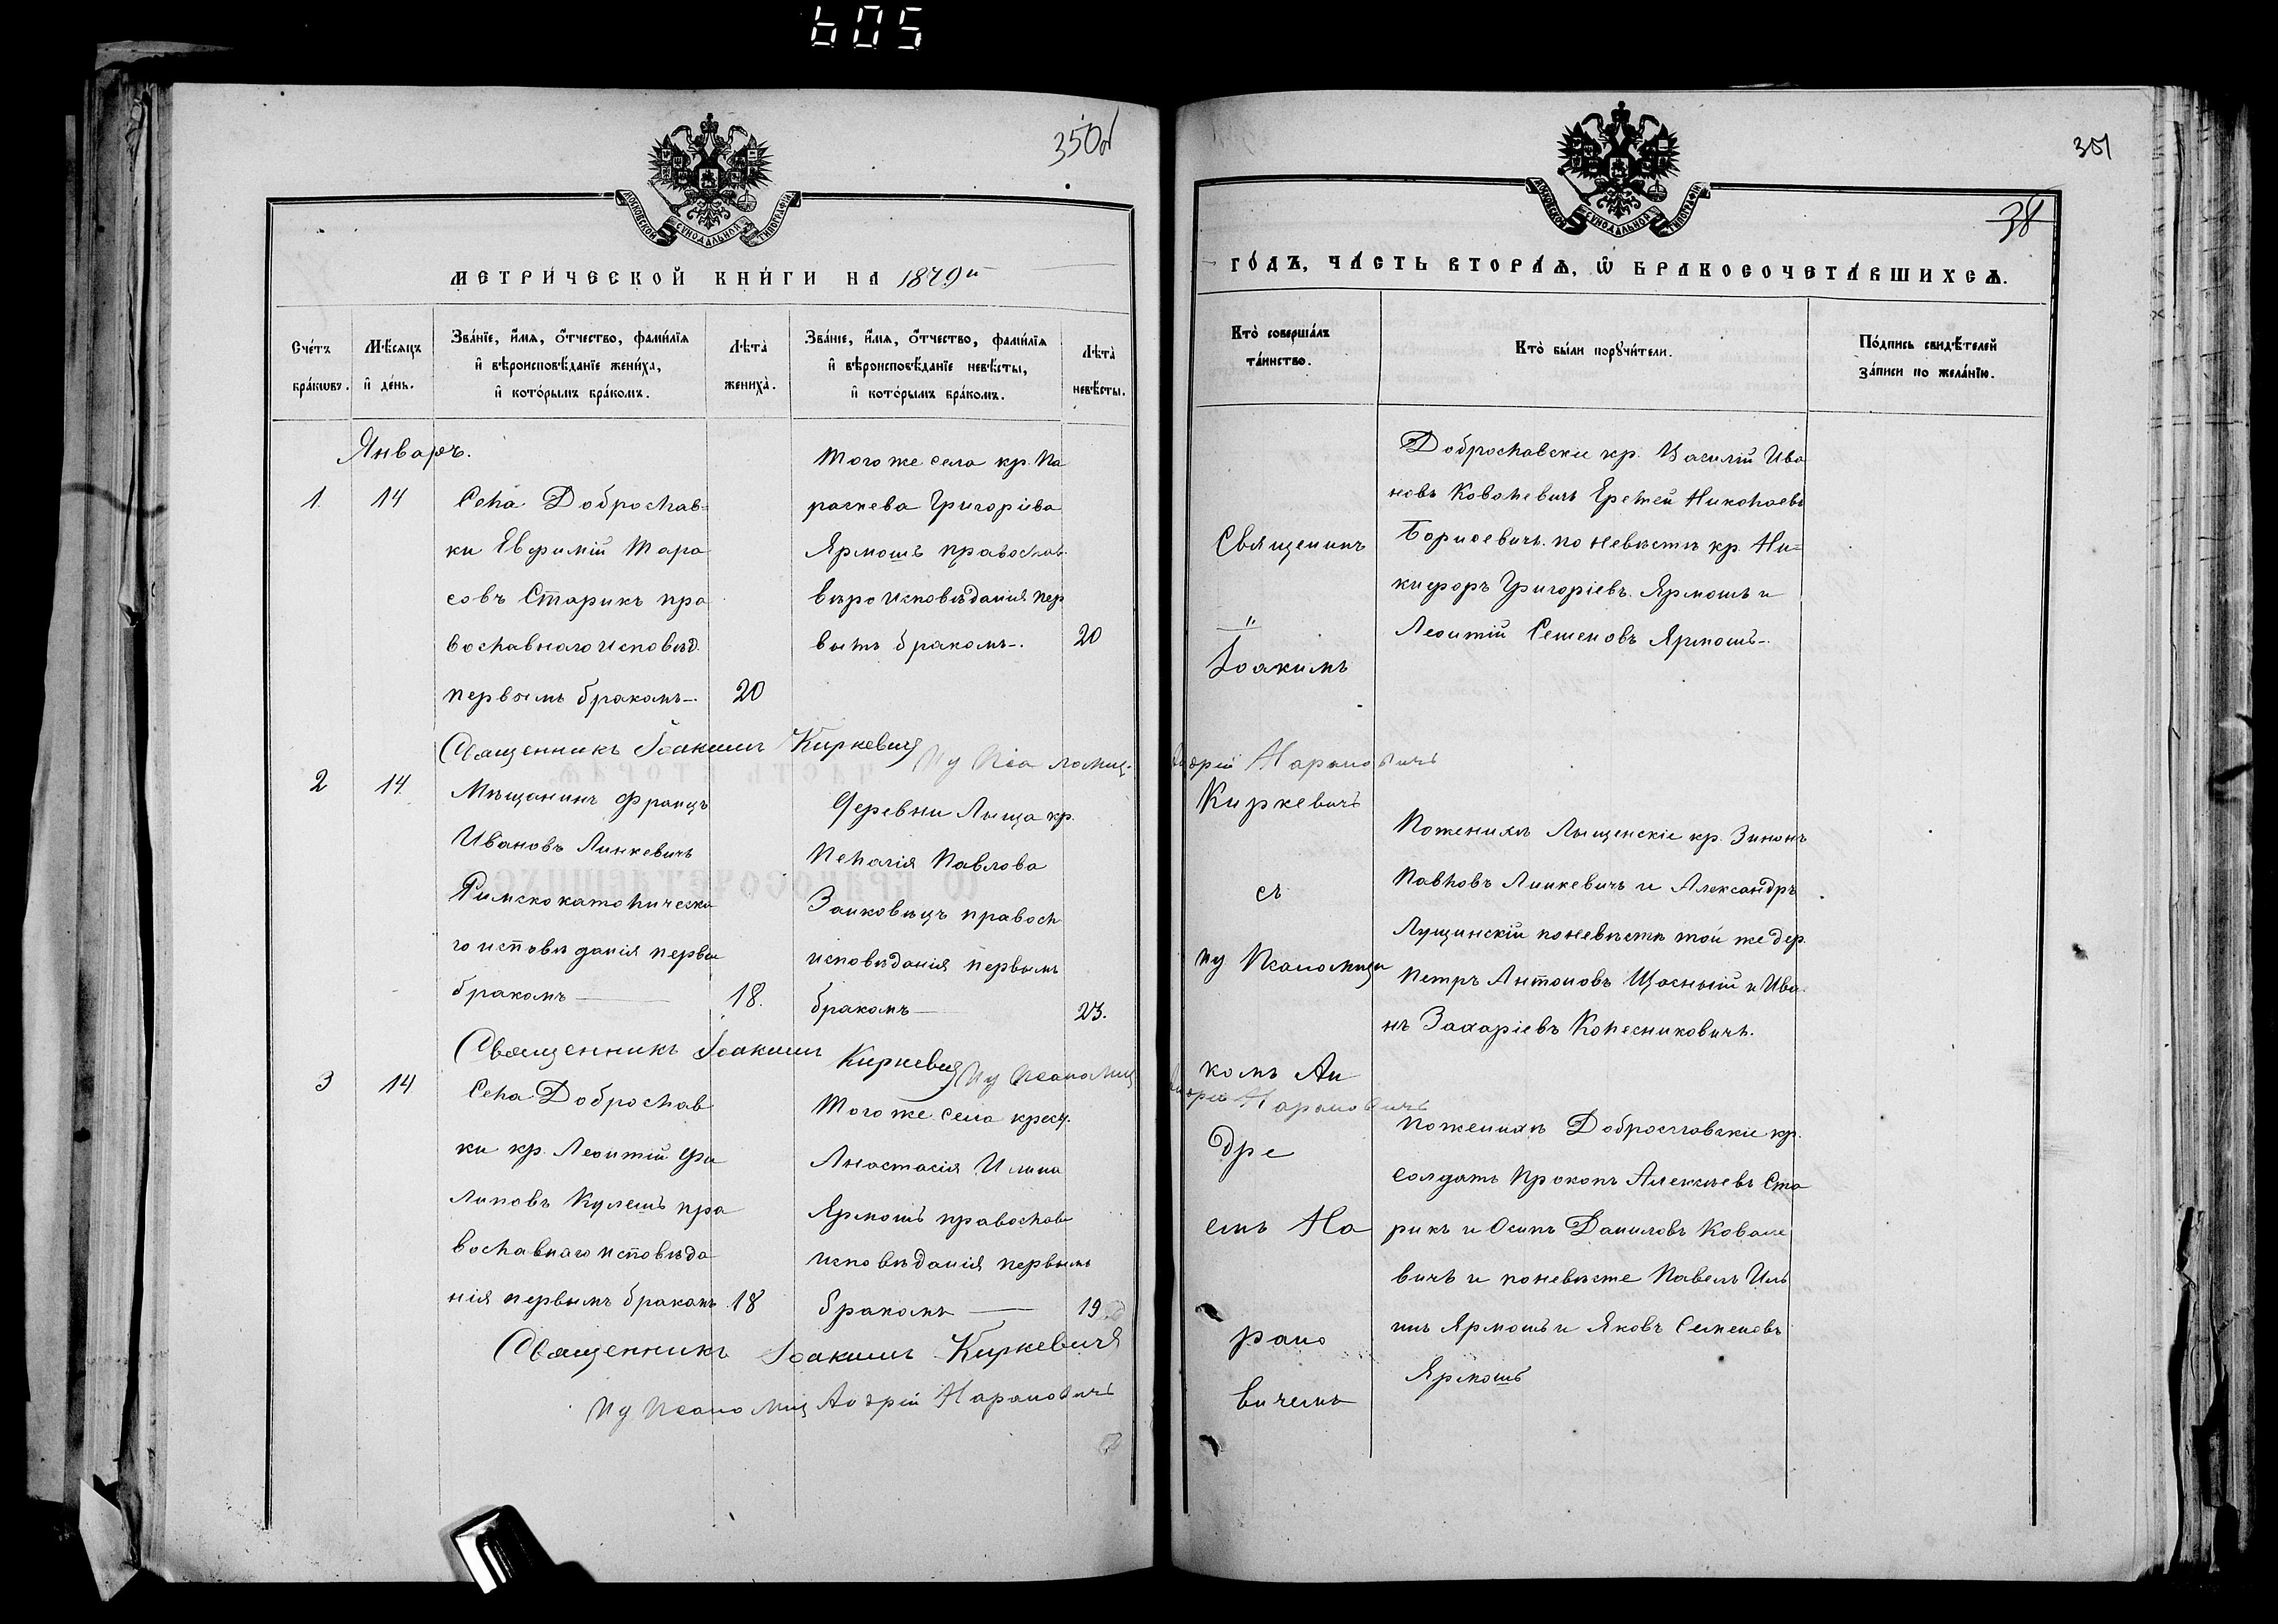 605
350об
МОСКОВСКОЙ СѴНОДАЛЬНОЙ ТИПОГРАФІИ
МЕТРИ́ЧЕСКОЙ КНИ́ГИ НА 1879й
Сче́тъ бра́кωвъ.
Мѣ́сяцъ и҆ де́нь.
Зва́нїе, и҆́мѧ, ѻ҆́тчество, фами́лїѧ и҆ вѣроисповѣ́данїе жениха̀, и҆ кото́рымъ бра́комъ.
Лѣта̀ жениха̀.
Зва́нїе, и҆́мѧ, ѻ҆́тчество, фами́лїѧ и҆ вѣроисповѣ́данїе невѣ́сты, и҆ кото́рымъ бра́комъ.
Лѣта̀ невѣ́сты.
Январь.
1. 14
Села Доброслав=
ки Евфимій Тара
совъ Старикъ пра
вославного исповѣд.
первымъ бракомъ-. 20
Того же села кр. Па
раскева Григоріева
Ярмошъ православ.
вѣроисповѣданія пер
вымъ бракомъ-. 20
Священникъ Іоакимъ Киркевичъ Ид Псаломщ. Андрій Нарановичъ
2 14.
Мѣщанинъ Францъ
Ивановъ Линкевичъ
Римскокатолическа
го исповѣданія первы
бракомъ 18.
Деревни Лыща кр.
Пелагія Павлова
Заиковщъ правосл
исповѣданія первымъ
бракомъ 23.
Священникъ Іоакимъ Киркевичъ Ид Псаломщ Андрій Нарановичъ
3 14
Села Доброслав
ки кр. Леонтій Фи
липовъ Кулешъ пра
вославнаго исповѣда
нія первымъ бракомъ 18
Того же села крест.
Анастасія Илина
Ярмошъ православ
исповѣданія первымъ
бракомъ 19
Священникъ Іоакимъ Киркевичъ
Ид Псаломщ Андрій Нарановичъ
351
38
МОСКОВСКОЙ СѴНОДАЛЬНОЙ ТИПОГРАФІИ
ГО́ДЪ, ЧА́СТЬ ВТОРА́Ѧ, Ѽ БРАКОСОЧЕТА́ВШИХСѦ.
Кто̀ соверша́лъ та́инство.
Кто̀ бы́ли порꙋчи́тели.
По́дпись свидѣ́телей за́писи по жела́нїю.
Священникъ
"
Іоакимъ
Киркевичъ
съ
ид Псаломщи
комъ Ан
дре
емъ На
рано
вичемъ
Доброславскіе кр. Василій Ива
новъ Ковалевичъ Ерстей Николаевъ
Борисевичъ. по невѣстѣ кр. Ни=
кифоръ Григоріевъ Ярмошъ и
Леонтій Семеновъ Ярмошъ-.
По женихѣ Лыщенскіе кр. Зинонъ
Павловъ Линкевичъ и Александръ
Лущинскій по невѣстѣ той же дер.
Петръ Антоновъ Щасный и Ива
нъ Захаріевъ Колесниковичъ.
По женихѣ Доброславскіе кр.
солдатъ Прокопъ Алексѣевъ Ста
рикъ и Осипъ Даниловъ Ковале
вичъ и по невѣсте Павелъ Иль
инъ Ярмошъ и Яковъ Семеновъ
Ярмошъ